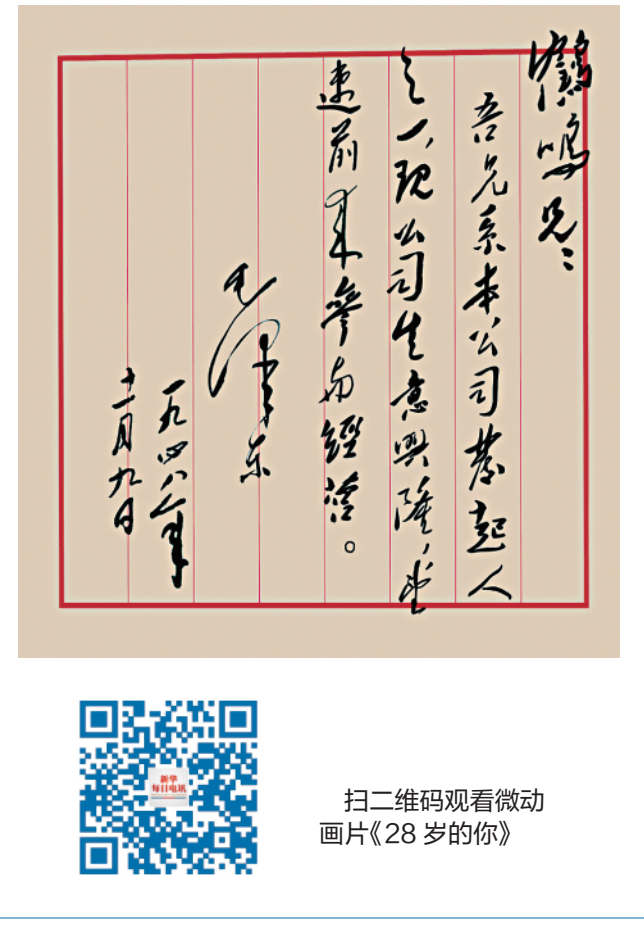 鶴鳴兄：
吾兄系本公司發起人
之一，现公司生意興隆，望
速前来參与經营。
毛澤东
一九四八年
十一月九日
新华
每日电讯
扫二维码观看微动
画片《28 岁的你》